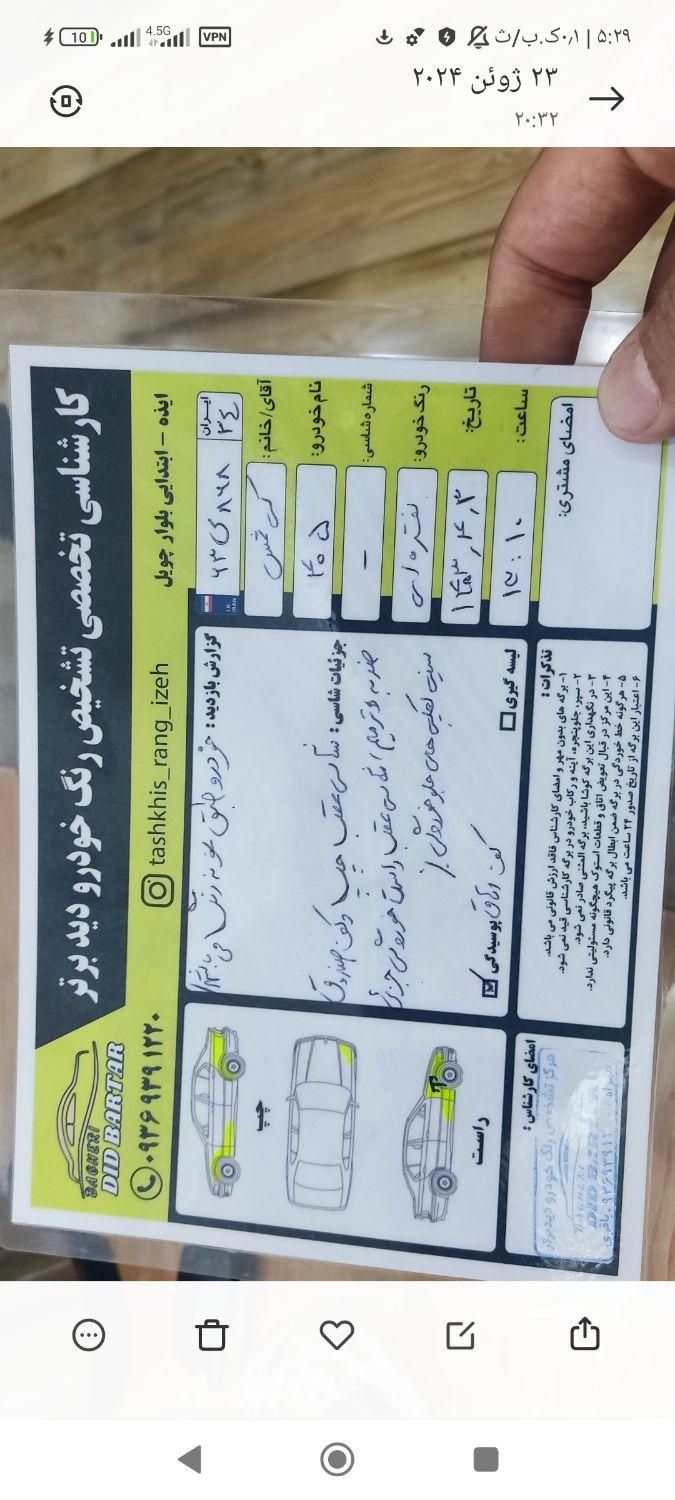 ۵:۲۹ | ۰٫۱ک.ب/ث
4.5G
VPN
10
۲۳ ژوئن ۲۰۲۴
۲۰:۳۲
کارشناسی تخصصی تشخیص رنگ خودرو دید برتر
BAGHERI
DID BARTAR
ایذه - ابتدایی بلوار چویل
tashkhis_rang_izeh
۰۹۳۶ ۹۳۹ ۱۲۲۰
ایران
۲۴
۶۳ی۸۶۸
I.R.
IRAN
آقای/خانم:
نام خودرو: ۴۰۵
شماره شاسی: -
رنگ خودرو: نقره ای
تاریخ: ۱۴۰۳,۴,۳
ساعت: ۱۲:۱۰
امضای مشتری:
گزارش بازدید: خودرو طبق نمونه رنگ می باشد
جزئیات شاسی: شاسی عقب چپ و کف صندوق
ضربه و ترمیم
لیسه گیری
پوسیدگی
کف اتاق
چپ
راست
تذکرات:
۱- برگه های بدون مهر و امضای کارشناس فاقد ارزش قانونی می باشد.
۲- سپر، جلوپنجره، آینه و رکاب خودرو در برگه کارشناسی قید نمی شود.
۳- در نگهداری این برگه کوشا باشید، برگه المثنی صادر نمی شود.
۴- این مرکز در قبال تعویض اتاق و قطعات استوک هیچگونه مسئولیتی ندارد.
۵- هرگونه خط خوردگی در برگه ضمن ابطال برگه پیگرد قانونی دارد.
۶- اعتبار این برگه از تاریخ صدور ۲۴ ساعت می باشد.
امضای کارشناس:
مرکز تشخیص رنگ خودرو دیدبرتر
BAGHERI